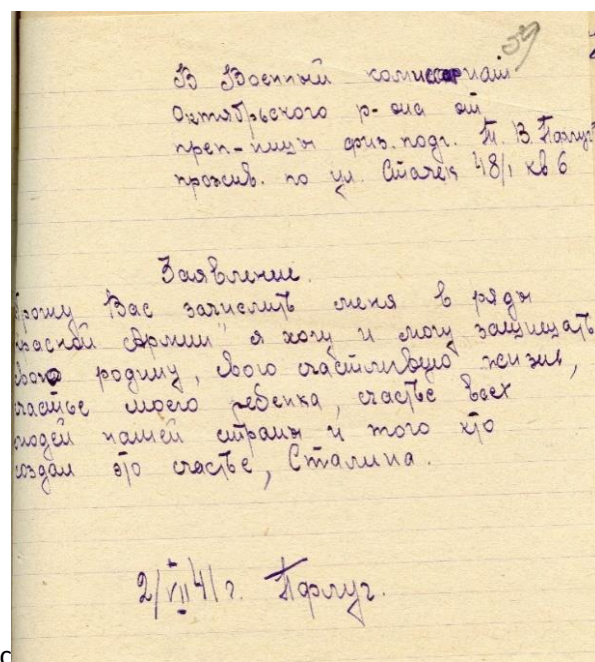 59
В Военный комиссариат
Октябрьского р-она от
преп-ницы физ. подг. Т. В. Пфлуг
прожив. по ул. Стачек 48/1 кв 6
Заявление.
прошу Вас зачислить меня в ряды
красной Армии" я хочу и могу защищать
свою родину, свою счастливую жизнь,
счастье моего ребенка, счастье всех
людей нашей страны и того кто
создал это счастье, Сталина.
2/VII 41 г. Пфлуг.
с